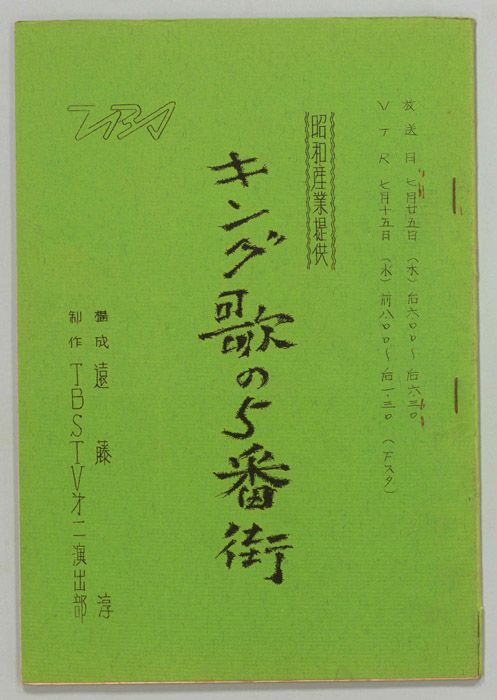 放送日 七月廿五日（木）后六00〜后六三0
VTR 七月十五日（水）前八00〜后一・三0（Fスタ）
昭和産業提供
キング歌の5番街
TBS
構成 遠藤淳
制作 TBSTV才二演出部